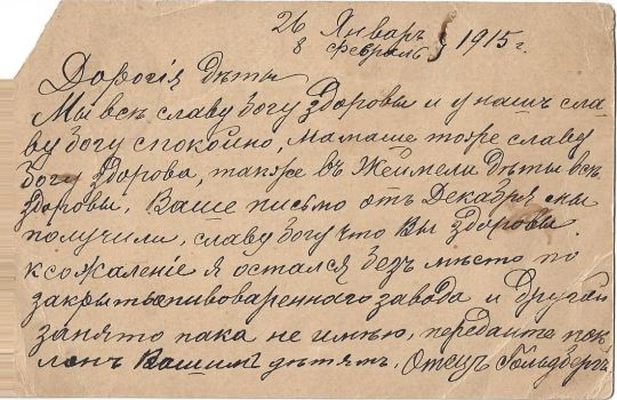 26 Январь } 1915 г.
8 февраль
Дорогія дѣты
Мы всѣ славу богу здоровы и у насъ сла-
ву богу спокойно, мамаше тоже славу
богу здорова, также въ Жеймели дѣты всѣ
здоровы. Ваше письмо отъ Декабря мы
получили, славу богу что вы здоровы.
к сожаленіе я остался безъ мѣсто по
закрыть пивоваренного завода и другой
занято пака не имѣю, передайте пок-
лонъ Вашимъ дѣтямъ. Отецъ Гольдбергъ